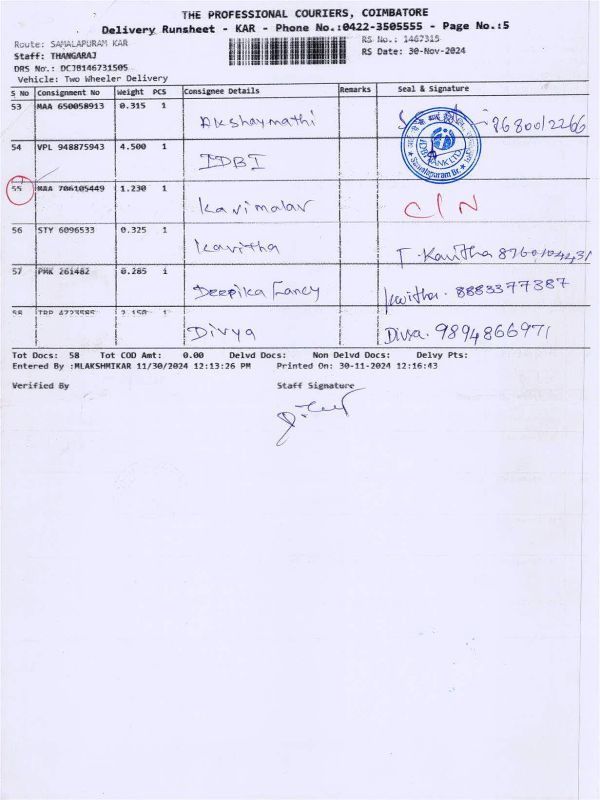 THE PROFESSIONAL COURIERS, COIMBATORE
Delivery Runsheet - KAR - Phone No.:0422-3505555 - Page No.:5
Route: SAMALAPURAM KAR RS No.: 1467315
Staff: THANGARAJ RS Date: 30-Nov-2024
DRS No.: DCJB146731505
Vehicle: Two Wheeler Delivery
S No Consignment No Weight PCS Consignee Details Remarks Seal & Signature
53 MAA 650058913 0.315 1 Akshaymathi 8680012266
54 VPL 948875943 4.500 1 IDBI IDBI BANK LTD. Samalapuram Br.
55 MAA 706105449 1.230 1 Kavimalar C/N
56 STY 6096533 0.325 1 Kavitha T. Kavitha 8760104431
57 PMK 261482 0.285 1 Deepika Fancy Kavitha. 8883377387
58 TRP 4723585 2.150 1 Divya Divya. 9894866971
Tot Docs: 58 Tot COD Amt: 0.00 Delvd Docs: Non Delvd Docs: Delvy Pts:
Entered By :MLAKSHMIKAR 11/30/2024 12:13:26 PM Printed On: 30-11-2024 12:16:43
Verified By Staff Signature